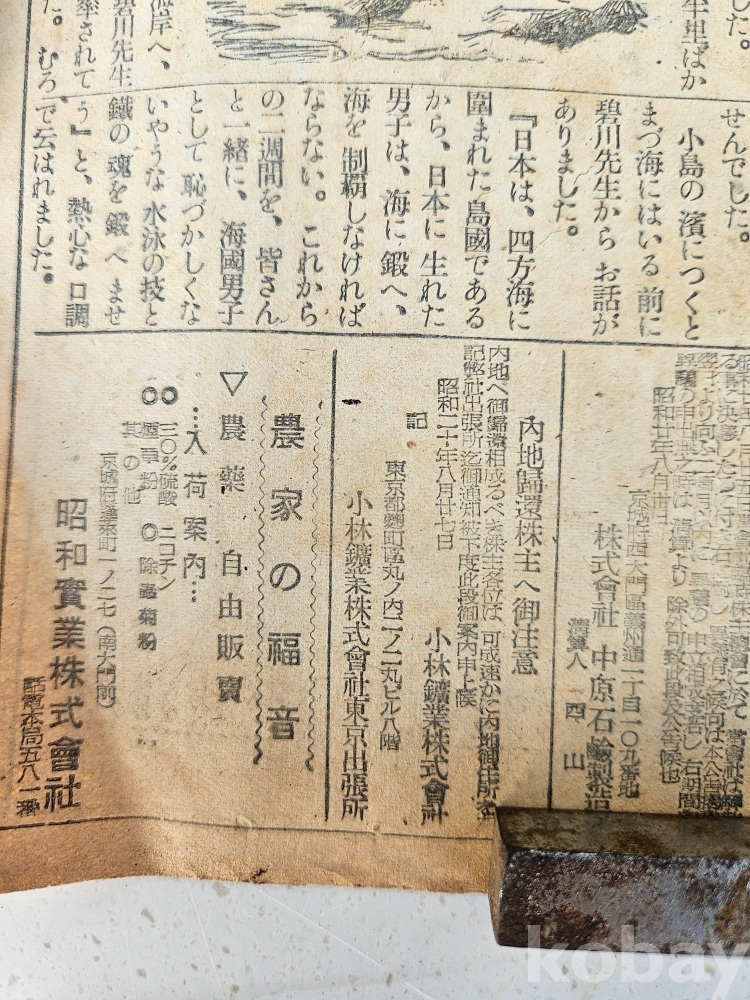 した。
半里ばか
海岸へ、
碧川先生
率されて
た。
せんでした。
小島の濱につくと
まづ海にはいる前に
碧川先生からお話が
ありました。
『日本は、四方海に
圍まれた島國である
から、日本に生れた
男子は、海に鍛へ、
海を制覇しなければ
ならない。これから
の二週間を、皆さん
と一緒に、海國男子
として恥づかしくな
いやうな水泳の技と
鐵の魂を鍛へませ
う』と、熱心な口調
で云はれました。
むろ
昭和廿年八月卅日
京城府西大門區義州通二丁目一〇九番地
株式會社中原石鹼製造
淸算人 西山
內地歸還株主へ御注意
內地へ御歸還相成るべき株主各位は可成速かに內地御住所を
記弊社出張所迄御通知被下度此段御案內申上候
昭和二十年八月廿七日
小林鑛業株式會社
記
東京都麴町區丸ノ內二ノ二丸ビル八階
小林鑛業株式會社東京出張所
農家の福音
▽農藥 自由販賣
…入荷案內…
○三〇%硫酸ニコチン
○除蟲菊粉
○煙草粉
其の他
京城府蓬萊町一ノ二七(南大門前)
昭和實業株式會社
話電本局五八一番
kobay